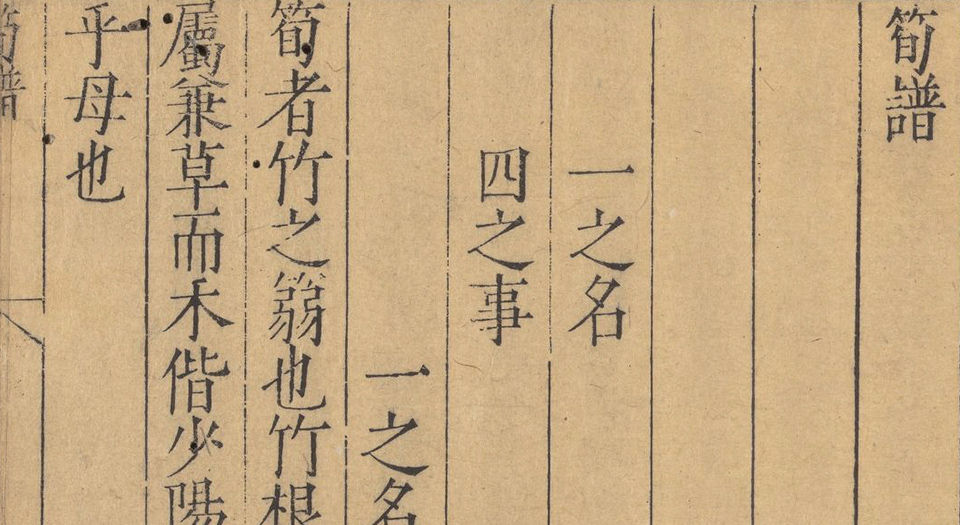 筍譜
一之名
四之事
一之名
筍者竹之篛也竹根
屬兼草而禾偕少陽
乎母也
筍譜